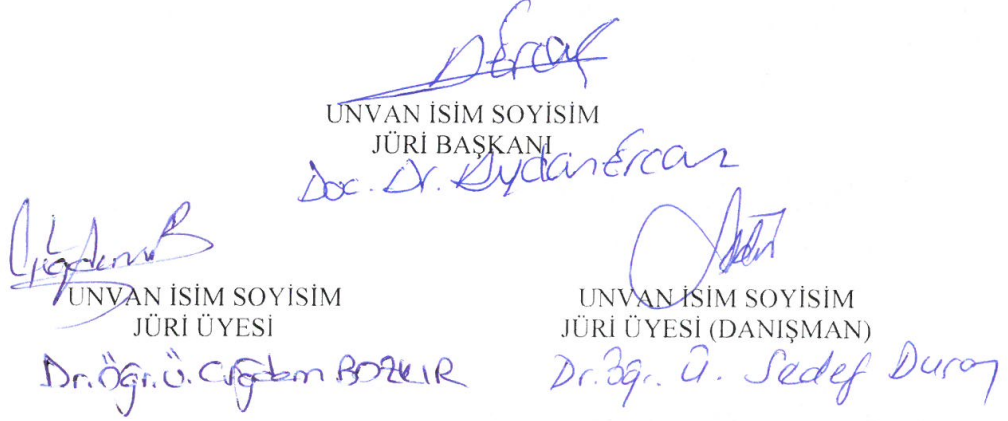 DErcan
UNVAN İSİM SOYİSİM
JÜRİ BAŞKANI
Doc. Dr. Aydan Ercan
ÇiğdemB
UNVAN İSİM SOYİSİM
JÜRİ ÜYESİ
Dr. Öğr. Ü. Çiğdem BOZKIR
UNVAN İSİM SOYİSİM
JÜRİ ÜYESİ (DANIŞMAN)
Dr. Öğr. Ü. Sedef Duran